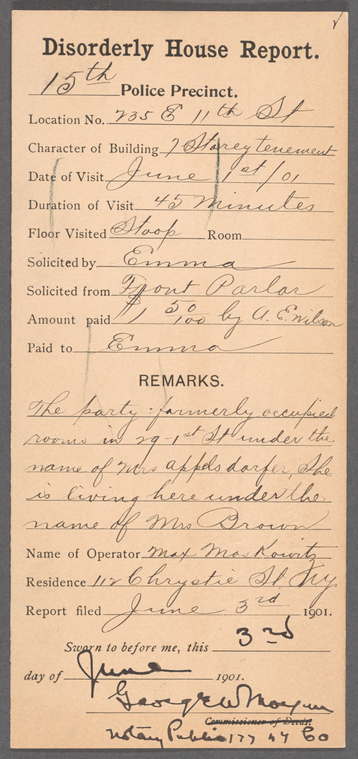 Disorderly House Report.
15th Police Precinct.
Location No. 235 E 11th St
Character of Building 7 Storey tenement
Date of Visit June 1st/01
Duration of Visit 45 minutes
Floor Visited Stoop Room
Solicited by Emma
Solicited from Front Parlor
Amount paid $1 50/100 by A. E. Wilson
Paid to Emma
REMARKS.
The party formerly occupied
rooms in 29-1st St under the
name of Mrs appelsdorfer, She
is living here under the
name of Mrs Brown
Name of Operator Max Moskowitz
Residence 112 Chrystie St. NY
Report filed June 3rd 1901.
Sworn to before me, this 3rd
day of June 1901.
George W Morgan
Commissioner of Deeds.
Notary Public 177 NY Co